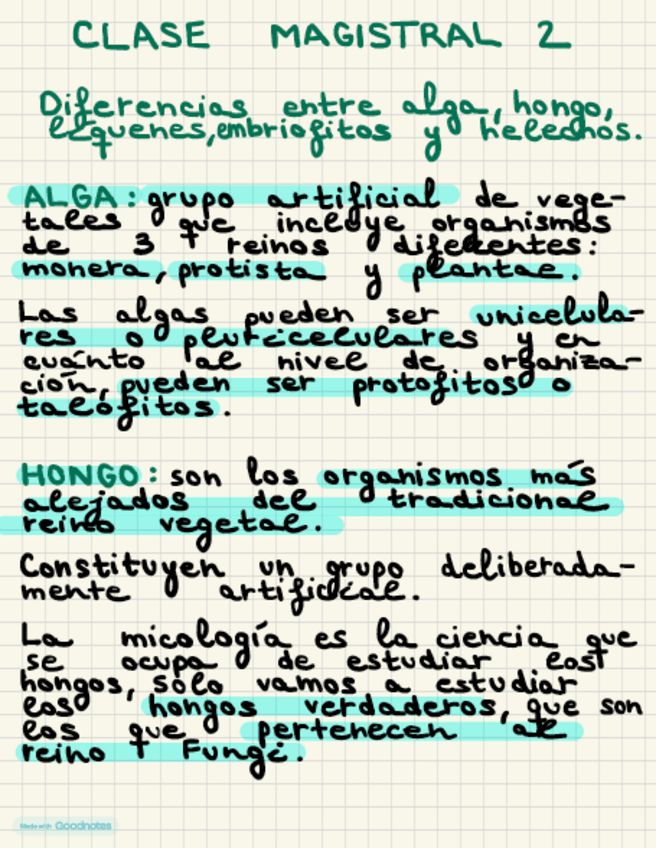 CLASE MAGISTRAL 2
Diferencias entre alga, hongo,
líquenes, embriofitos y helechos.
ALGA: grupo artificial de vege-
tales que incluye organismos
de 3 reinos diferentes:
monera, protista y plantae.
Las algas pueden ser unicelula-
res o pluricelulares y en
cuánto al nivel de organiza-
ción, pueden ser protofitos o
talófitos.
HONGO: son los organismos más
alejados del tradicional
reino vegetal.
Constituyen un grupo deliberada-
mente artificial.
La micología es la ciencia que
se ocupa de estudiar los
hongos, sólo vamos a estudiar
los hongos verdaderos, que son
los que pertenecen al
reino Fungi.
Made with Goodnotes